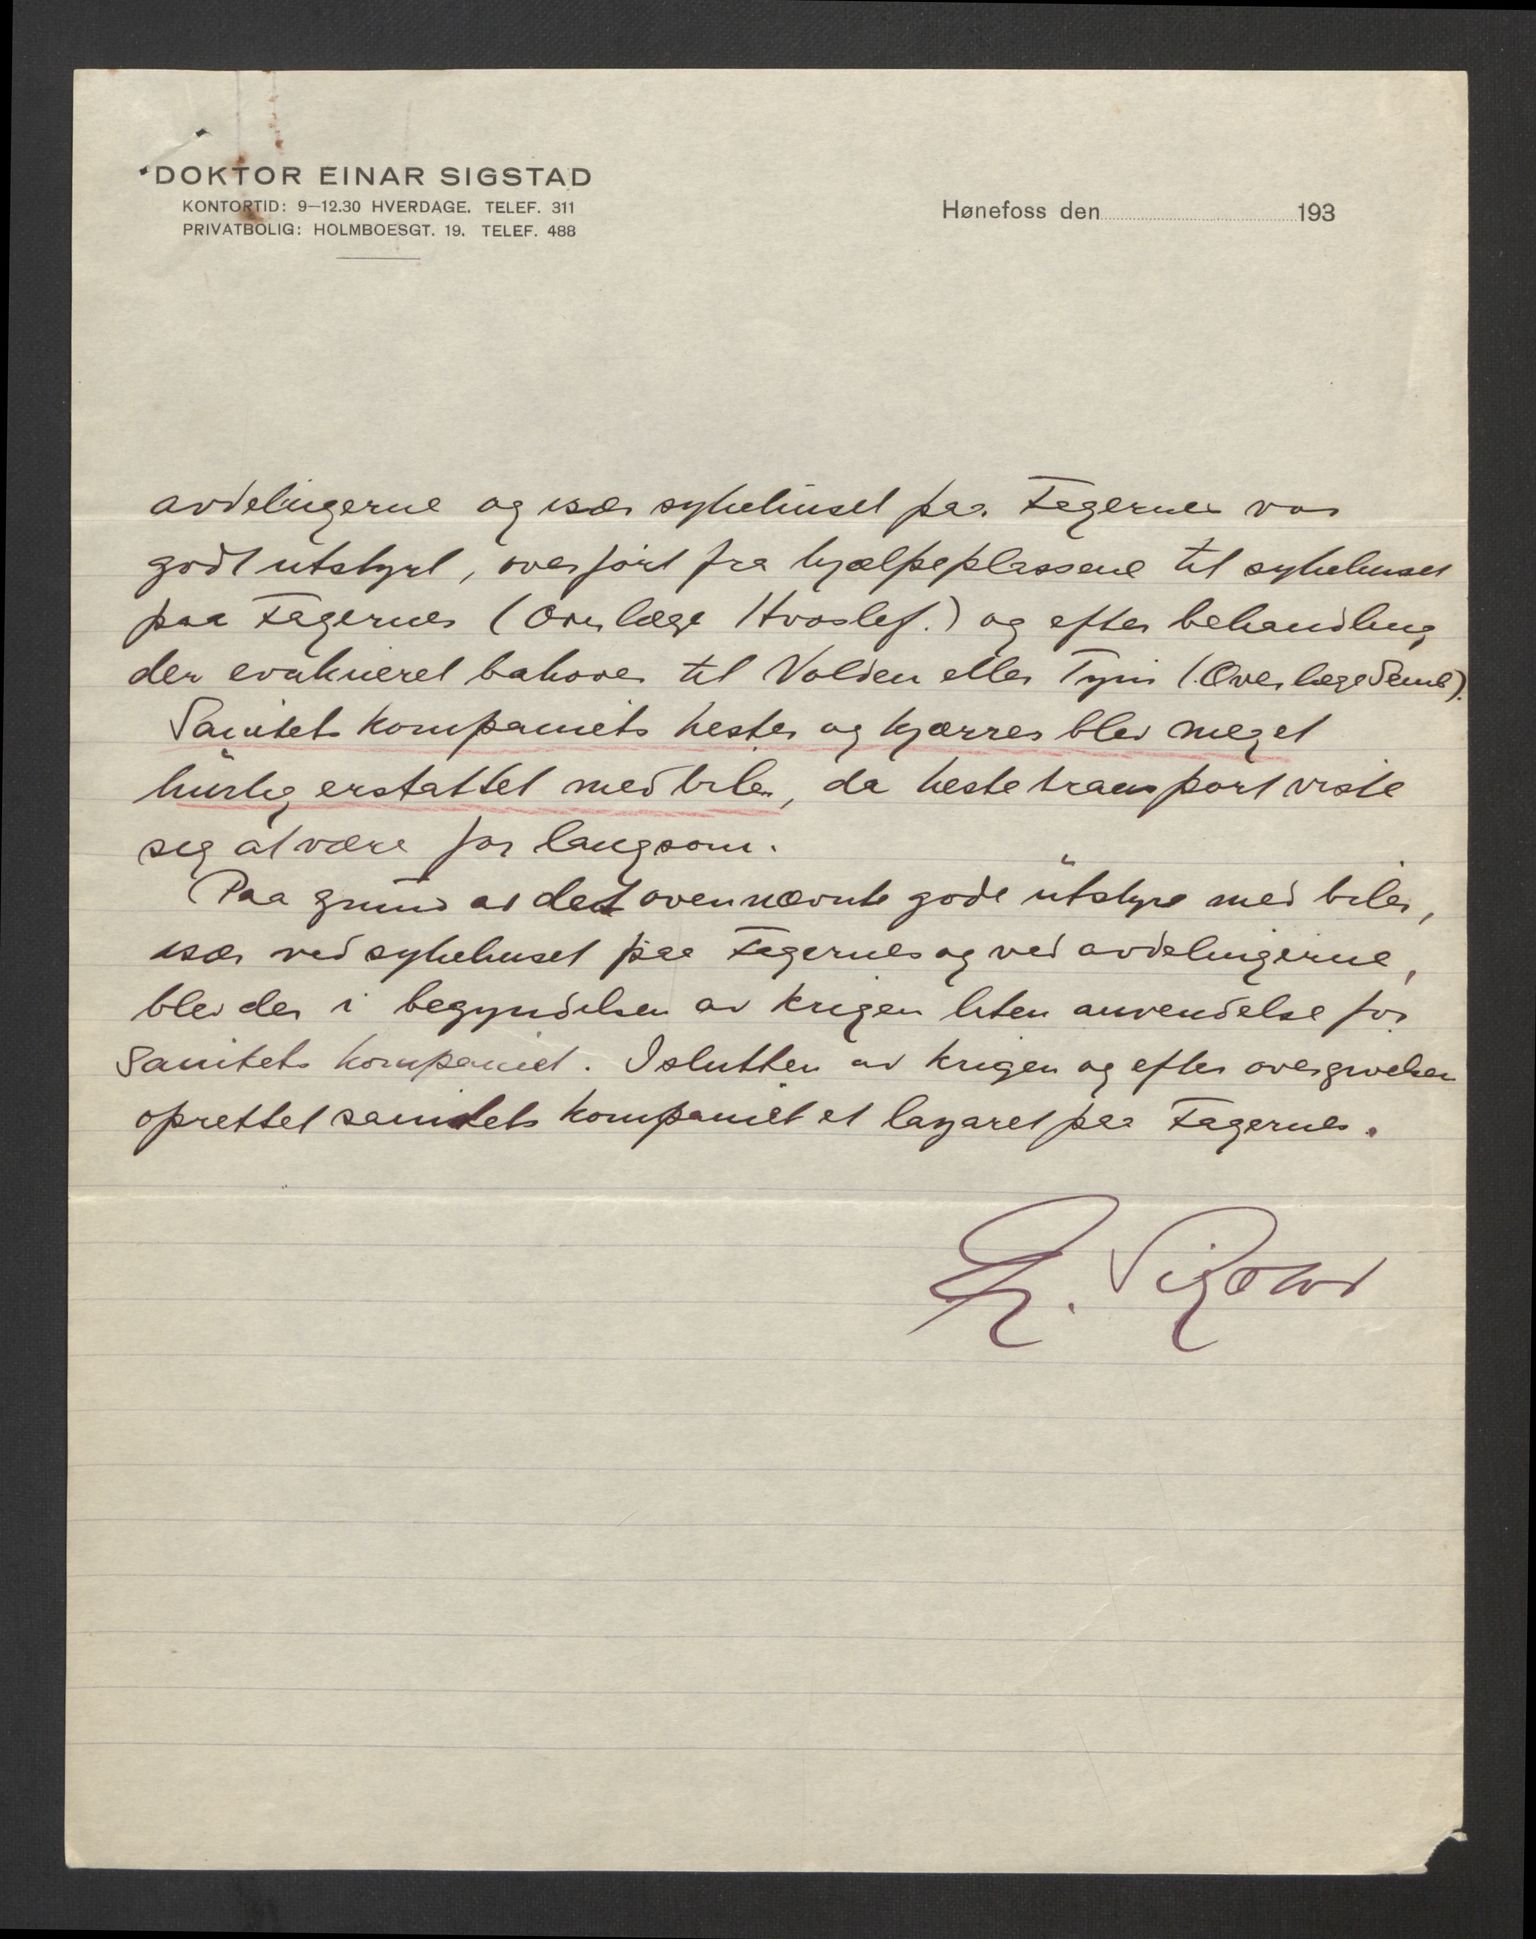 DOKTOR EINAR SIGSTAD
KONTORTID: 9–12.30 HVERDAGE. TELEF. 311
PRIVATBOLIG: HOLMBOESGT. 19. TELEF. 488
Hønefoss den 193
avdelingerne og især sykehuset paa Fagernes var
godt utstyrt, overført fra hjælpeplassene til sykehuset
paa Fagernes (Overlæge Hvoslef.) og efter behandling
der evakueret bakover til Volden eller Tyin (Overlæge
Sanitetskompaniets hester og kjærrer blev meget
hurtig erstattet med biler, da hestetransport viste
seg at være for langsom.
Paa grund av det ovennævnte gode utstyr med biler,
især ved sykehuset paa Fagernes og ved avdelingerne,
blev der i begyndelsen av krigen liten anvendelse for
Sanitetskompaniet. I slutten av krigen og efter overgivelsen
oprettet sanitetskompaniet et lazaret paa Fagernes.
E. Sigstad